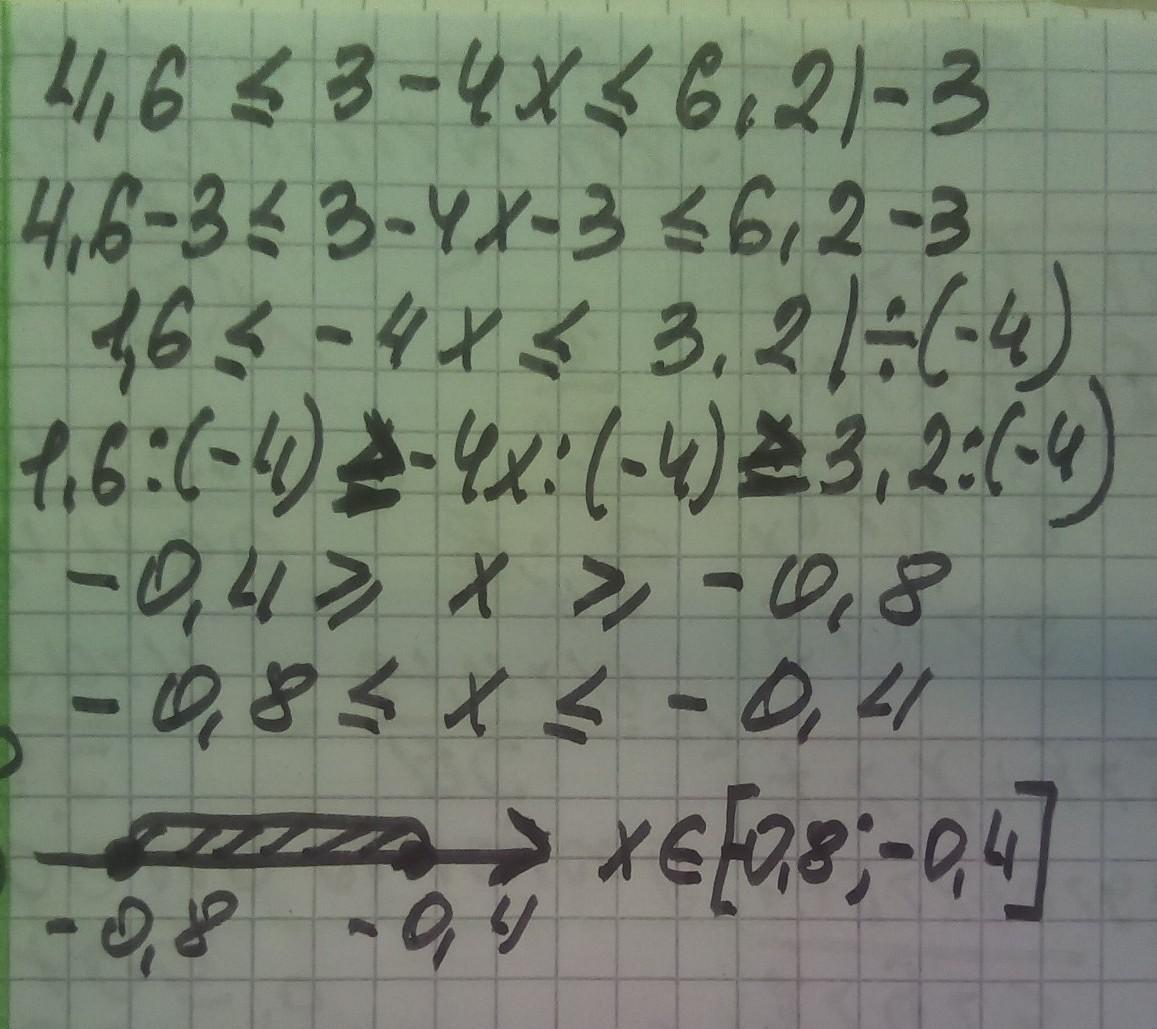 4,6 ≤ 3 - 4x ≤ 6,2 | - 3
4,6 - 3 ≤ 3 - 4x - 3 ≤ 6,2 - 3
1,6 ≤ - 4x ≤ 3,2 | ÷ (-4)
1,6 : (-4) ≥ - 4x : (-4) ≥ 3,2 : (-4)
- 0,4 ⩾ x ⩾ - 0,8
- 0,8 ≤ x ≤ - 0,4
x ∈ [-0,8; -0,4]
- 0,8 - 0,4